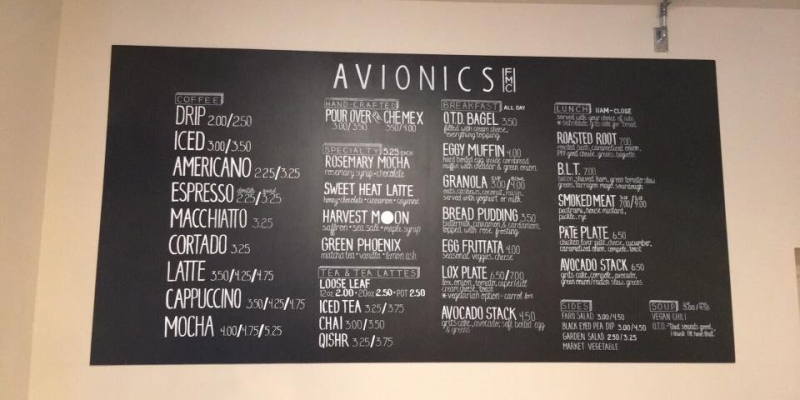 AVIONICS FMC
COFFEE
DRIP 2.00/2.50
ICED 3.00/3.50
AMERICANO 2.25/3.25
ESPRESSO 2.25/3.25
MACCHIATTO 3.25
CORTADO 3.25
LATTE 3.50/4.25/4.75
CAPPUCCINO 3.50/4.25/4.75
MOCHA 4.00/4.75/5.25
HAND-CRAFTED
POUR OVER CHEMEX
3.00/3.50 3.50/4.00
SPECIALTY 5.25 EACH
ROSEMARY MOCHA
rosemary syrup · chocolate
SWEET HEAT LATTE
honey · chocolate · cinnamon · cayenne
HARVEST MOON
saffron · sea salt · maple syrup
GREEN PHOENIX
matcha tea · vanilla · lemon ash
TEA & TEA LATTES
LOOSE LEAF
12oz 2.00 · 20oz 2.50 · POT 2.50
ICED TEA 3.25/3.75
CHAI 3.00/3.50
QISHR 3.25/3.75
BREAKFAST ALL DAY
O.T.D. BAGEL 3.50
filled with cream cheese,
everything topping
EGGY MUFFIN 4.00
hard boiled egg inside cornbread
muffin with cheddar & green onion
GRANOLA 3.00/4.00
oats, cashews, coconut,
served with yoghurt or milk
BREAD PUDDING 3.50
buttermilk, cinnamon & cardamom,
topped with rose frosting
EGG FRITTATA 4.00
seasonal veggies, cheese
LOX PLATE 6.50/7.00
lox, onion, tomato, caper/dill
cream cheese, toast
* vegetarian option - carrot lox
AVOCADO STACK 4.50
grits cake, avocado, soft boiled egg
& greens
LUNCH 11AM-CLOSE
served with your choice of side
* substitute grits cake for bread
ROASTED ROOT 7.00
roasted beets, caramelized onion,
goat cheese, greens, baguette
B.L.T. 7.00
bacon, shaved ham, green tomato slaw
greens, tarragon mayo, sourdough
SMOKED MEAT 7.00/9.00
pastrami, house mustard,
pickle, rye
PÂTE PLATE 6.50
chicken liver pâte, cheese, cucumber,
caramelized onion, compote, toast
AVOCADO STACK 6.50
grits cake, compote, avocado,
green onion/radish slaw, greens
SIDES
FARO SALAD 3.00/4.50
BLACK EYED PEA DIP 3.00/4.50
GARDEN SALAD 2.50/3.25
MARKET VEGETABLE
SOUP 3.00/4.50
VEGAN CHILI
O.T.D. "That sounds good,
I think I'll have that."